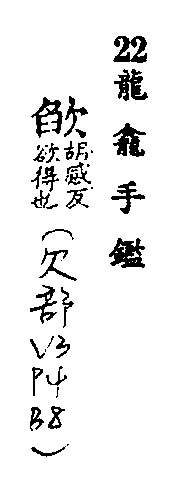 22龍龕手鑑
欿胡感反
欲得也
(欠部
V3
P4
B8)